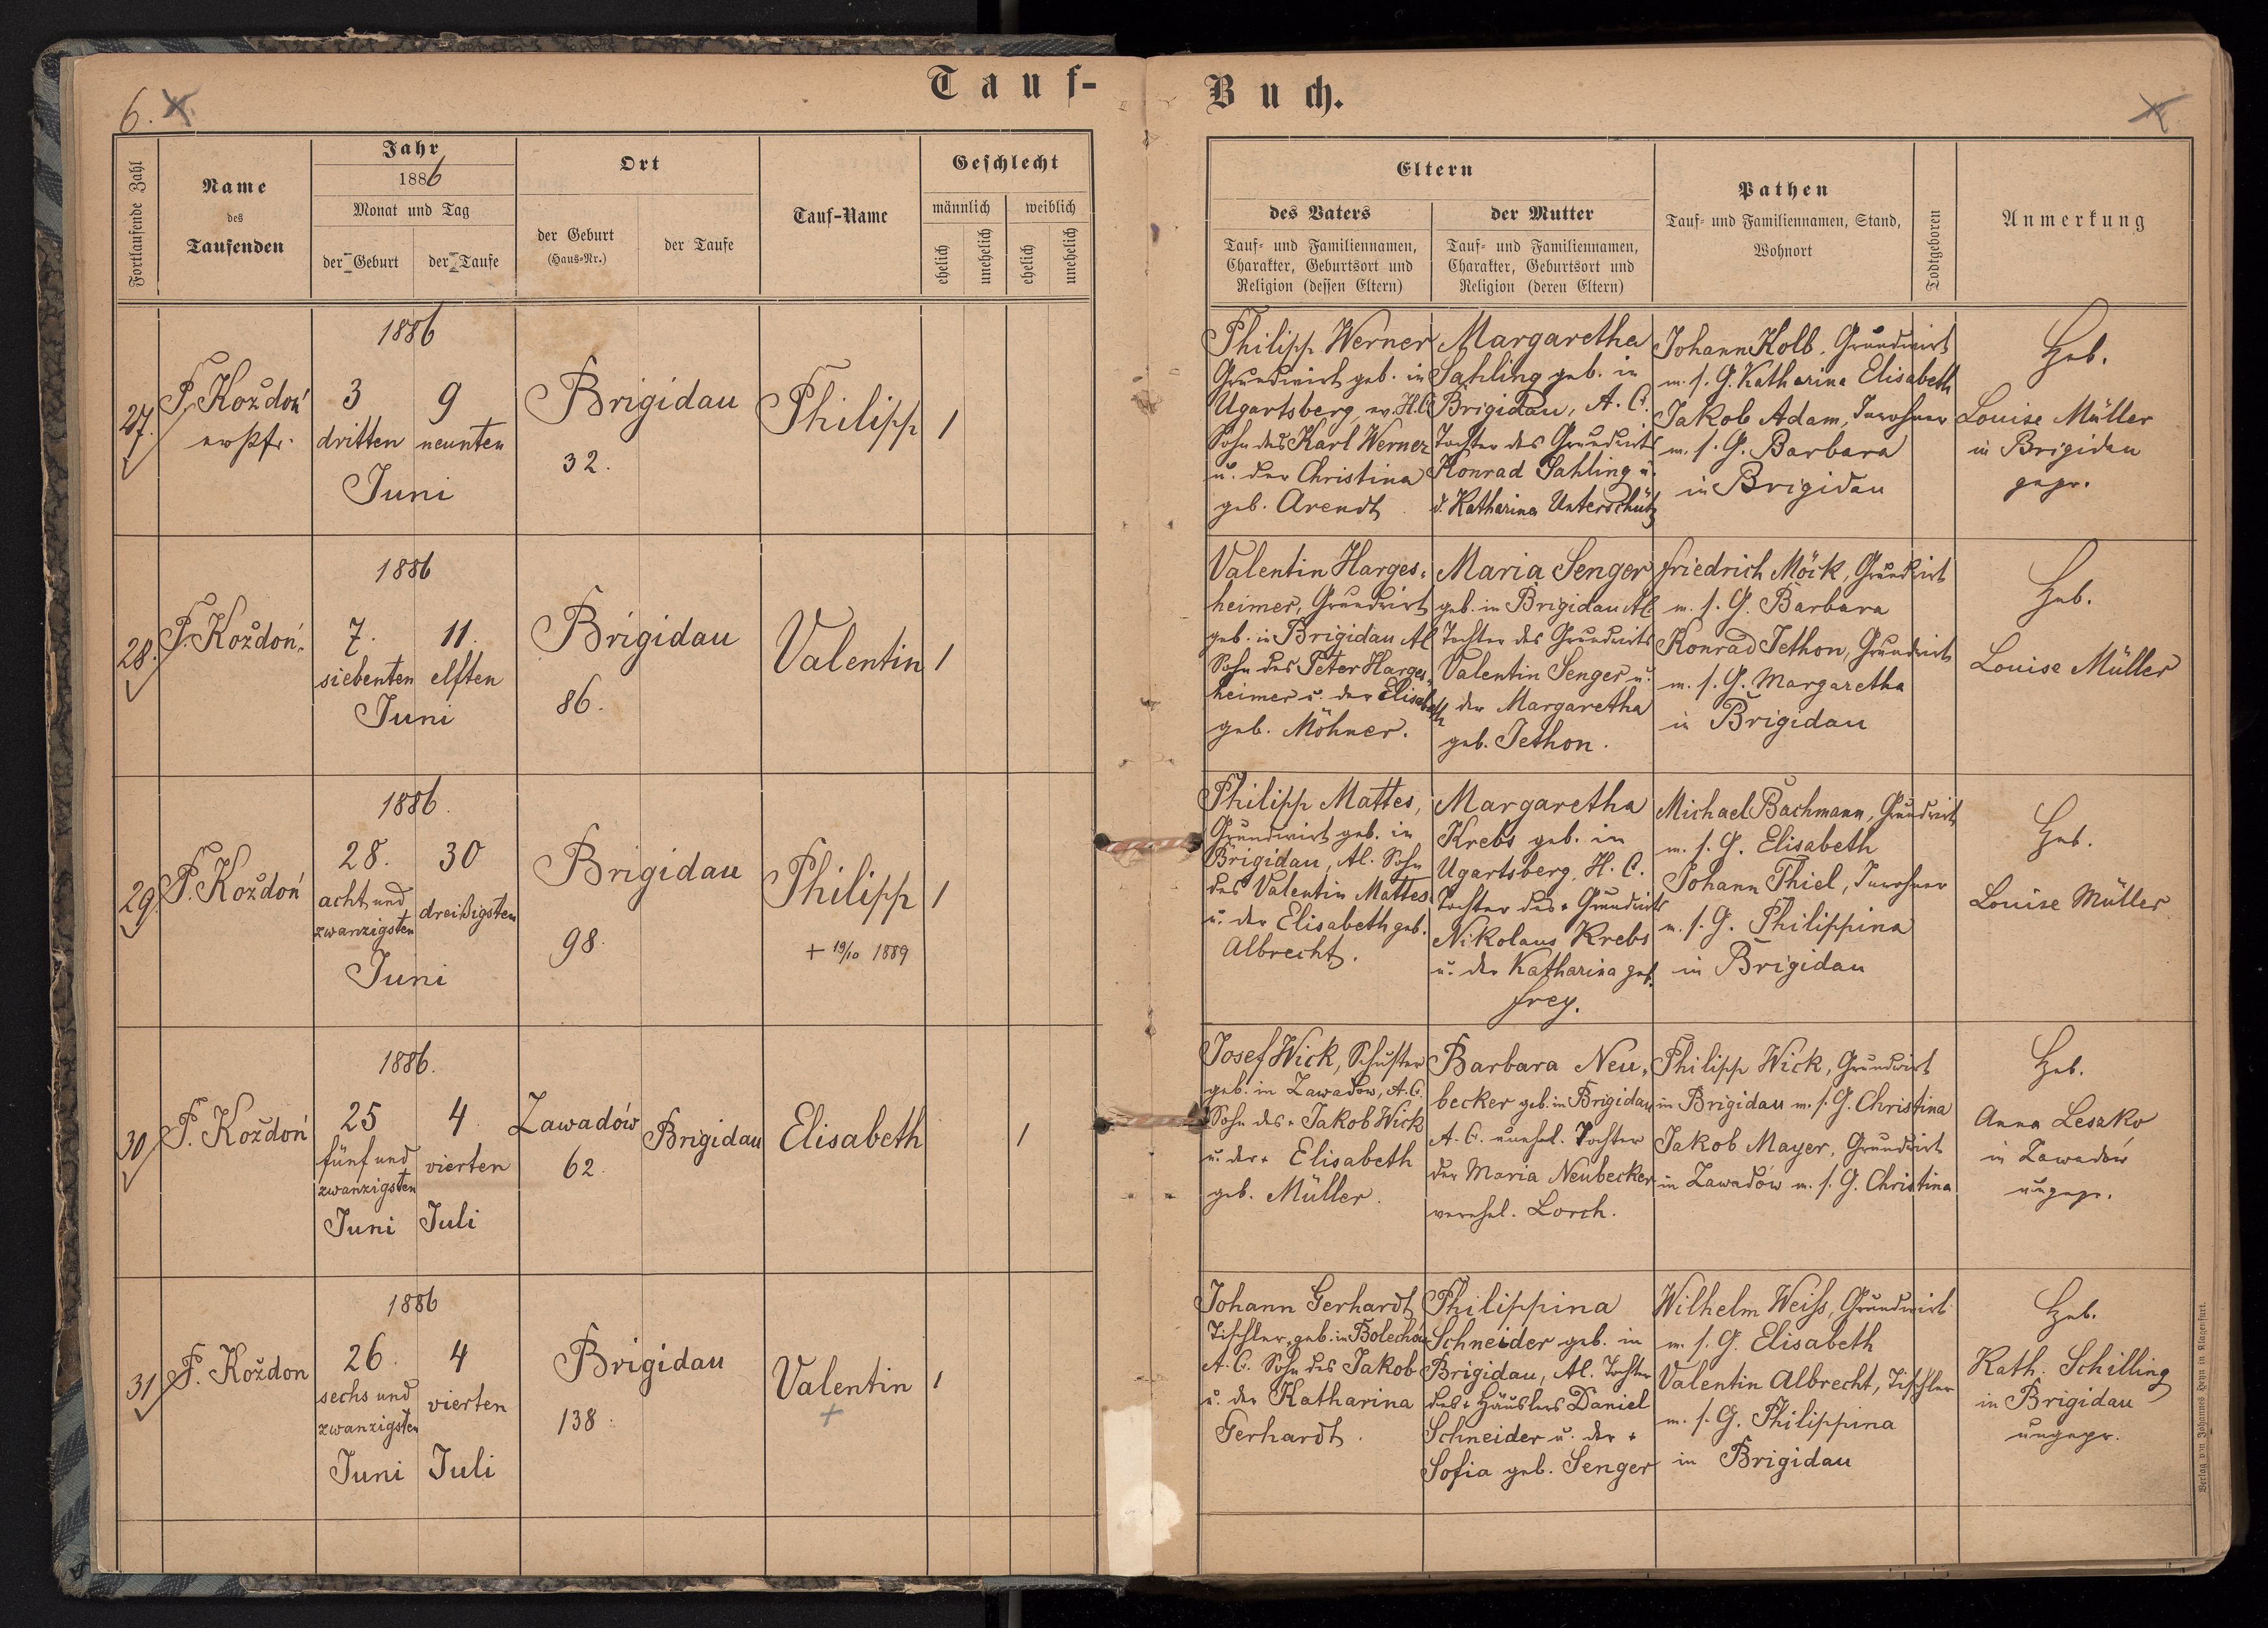 6.
Tauf-
Buch.
Fortlaufende Zahl
Name
des
Taufenden
Jahr
1886
Monat und Tag
der Geburt
der Taufe
Ort
der Geburt
(Haus-Nr.)
der Taufe
Tauf-Name
Geschlecht
männlich
weiblich
ehelich
unehelich
ehelich
unehelich
Eltern
des Vaters
Tauf- und Familiennamen,
Charakter, Geburtsort und
Religion (dessen Eltern)
der Mutter
Tauf- und Familiennamen,
Charakter, Geburtsort und
Religion (deren Eltern)
Pathen
Tauf- und Familiennamen, Stand,
Wohnort
Todtgeboren
Anmerkung
27.
P. Koždoń
ev. Pfr.
1886
3 9
dritten neunten
Juni
Brigidau
32.
Philipp
1
Philipp Werner
Grundwirt geb. in
Ugartsberg, ev. H.C.
Sohn des Karl Werner
u. der Christina
geb. Arendt
Margaretha
Sahling geb. in
Brigidau, A. C.
Tochter des Grundwirts
Konrad Sahling u.
d. Katharina Unterschütz
Johann Kolb, Grundwirt
m. s. G. Katharina Elisabeth
Jakob Adam, Inwohner
m. s. G. Barbara
in Brigidau
Heb.
Louise Müller
in Brigidau
gepr.
28.
P. Koždoń.
1886
7. 11.
siebenten elften
Juni
Brigidau
86.
Valentin
1
Valentin Harges-
heimer, Grundwirt
geb. in Brigidau AC
Sohn des Peter Harges-
heimer u. der Elisabeth
geb. Möhner.
Maria Senger
geb. in Brigidau AC
Tochter des Grundwirts
Valentin Senger u.
der Margaretha
geb. Jethon.
Friedrich Möck, Grundwirt
m. s. G. Barbara
Konrad Jethon, Grundwirt
m. s. G. Margaretha
in Brigidau
Heb.
Louise Müller
29.
P. Koždoń
1886.
28. 30
acht und
zwanzigsten
dreißigsten
Juni
Brigidau
98.
Philipp
+ 19/10 1889
1
Philipp Mattes,
Grundwirt geb. in
Brigidau, AC. Sohn
des Valentin Mattes
u. der Elisabeth geb.
Albrecht.
Margaretha
Krebs geb. in
Ugartsberg, H. C.
Tochter des + Grundwirts
Nikolaus Krebs
u. der Katharina geb.
Frey.
Michael Bachmann, Grundwirt
m. s. G. Elisabeth
Johann Thiel, Inwohner
m. s. G. Philippina
in Brigidau
Heb.
Louise Müller
30
P. Koždoń
1886.
25 4.
fünf und
zwanzigsten
vierten
Juni Juli
Zawadów
62.
Brigidau
Elisabeth
1
Josef Wick, Schuster
geb. in Zawadów, A.C.
Sohn des + Jakob Wick
u. der + Elisabeth
geb. Müller.
Barbara Neu-
becker geb. in Brigidau
A. C. unehel. Tochter
der Maria Neubecker
verehel. Lorch.
Philipp Wick, Grundwirt
in Brigidau m. s. G. Christina
Jakob Mayer, Grundwirt
in Zawadów m. s. G. Christina
Heb.
Anna Leszko
in Zawadów
ungepr.
31
P. Koždon
1886
26. 4
sechs und
zwanzigsten
vierten
Juni Juli
Brigidau
138.
Valentin
+
1
Johann Gerhardt
Tischler, geb. in Bolechów
A. C. Sohn des Jakob
u. der Katharina
Gerhardt.
Philippina
Schneider geb. in
Brigidau, AC. Tochter
des + Häuslers Daniel
Schneider u. der +
Sofia geb. Senger
Wilhelm Weiss, Grundwirt
m. s. G. Elisabeth
Valentin Albrecht, Tischler
m. s. G. Philippina
in Brigidau
Heb.
Kath. Schilling
in Brigidau
ungepr.
Verlag von Johannes Heyn in Klagenfurt.